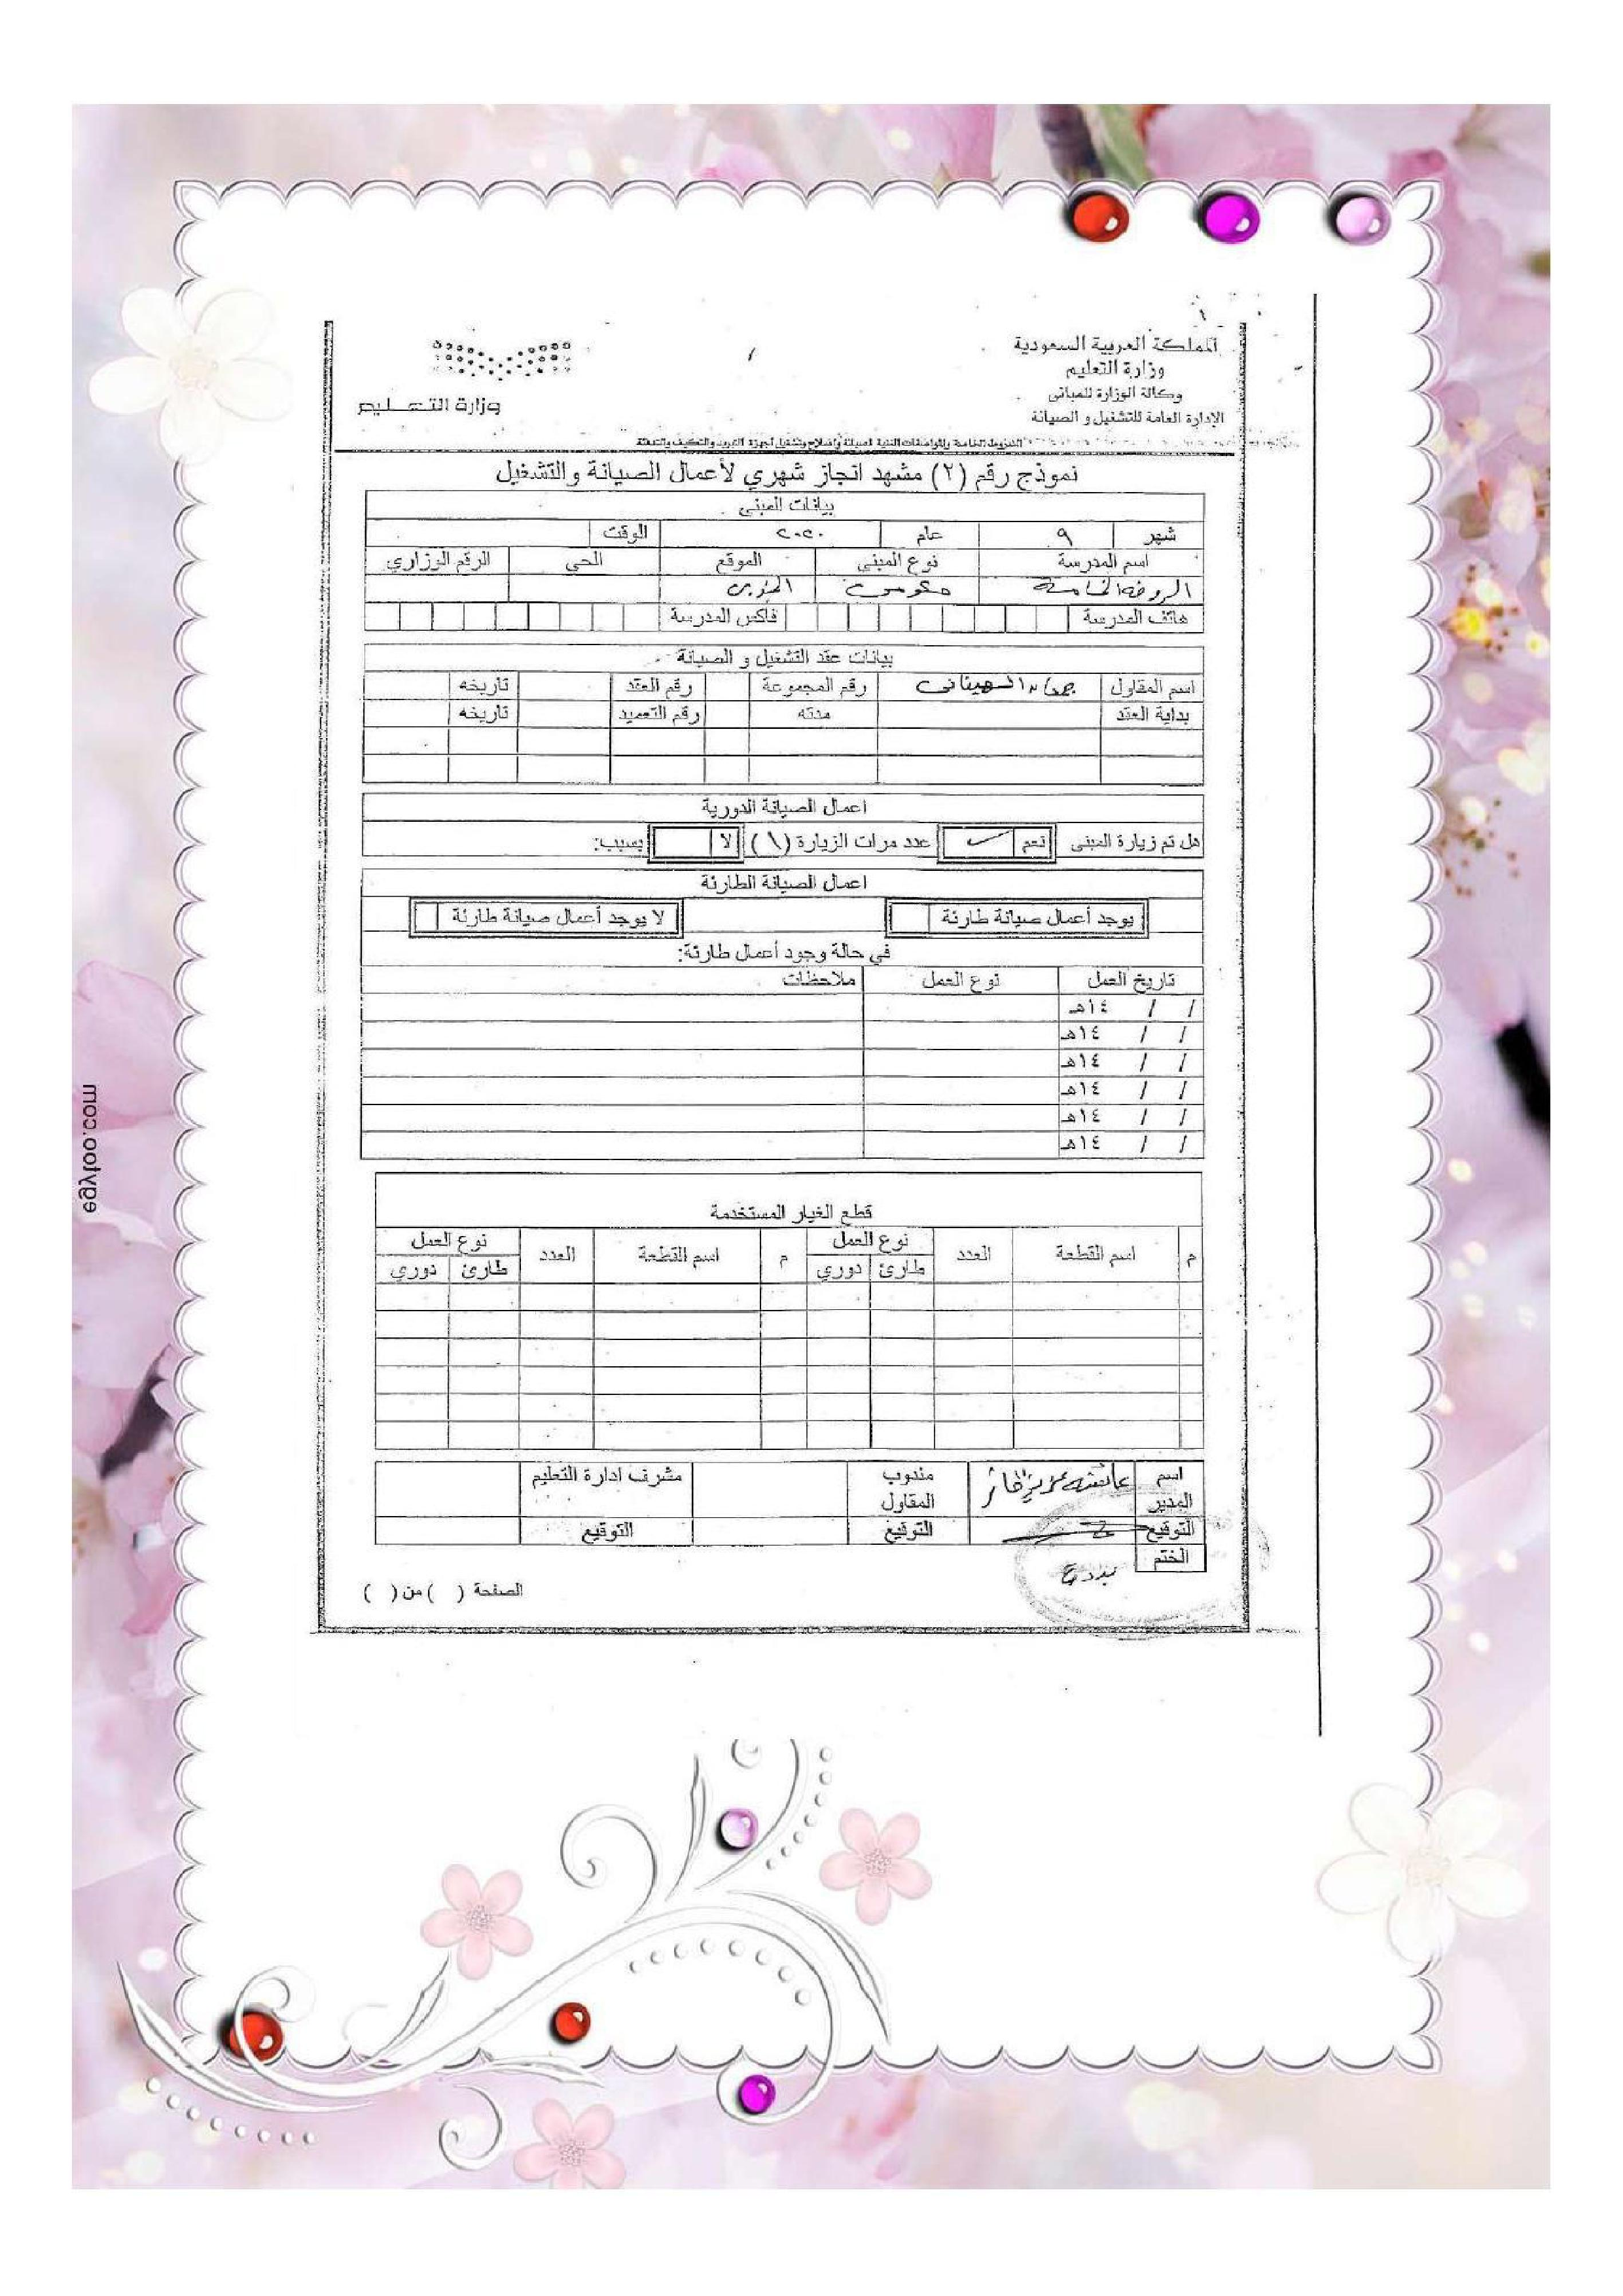 المملكة العربية السعودية
وزارة التعليم
وكالة الوزارة للمباني
الإدارة العامة للتشغيل و الصيانة
وزارة التعليم
الشروط الخاصة والمواصفات الفنية لصيانة وإصلاح وتشغيل أجهزة التبريد والتكييف والتدفئة
نموذج رقم (٢) مشهد انجاز شهري لأعمال الصيانة والتشغيل
بيانات المبنى
شهر ٩ عام ٢٠٢٠ الوقت
اسم المدرسة نوع المبنى الموقع الحي الرقم الوزاري
الروضة الخامسة
هاتف المدرسة فاكس المدرسة
بيانات عقد التشغيل و الصيانة
اسم المقاول رقم المجموعة رقم العقد تاريخه
بداية العقد مدته رقم التعميد تاريخه
اعمال الصيانة الدورية
هل تم زيارة المبنى نعم ✓ عدد مرات الزيارة (١) لا بسبب:
اعمال الصيانة الطارئة
يوجد أعمال صيانة طارئة لا يوجد أعمال صيانة طارئة
في حالة وجود أعمال طارئة:
تاريخ العمل نوع العمل ملاحظات
/ / ١٤هـ
/ / ١٤هـ
/ / ١٤هـ
/ / ١٤هـ
/ / ١٤هـ
/ / ١٤هـ
قطع الغيار المستخدمة
م اسم القطعة العدد نوع العمل م اسم القطعة العدد نوع العمل
طارئ دوري طارئ دوري
اسم المدير مندوب المقاول مشرف ادارة التعليم
التوقيع التوقيع التوقيع
الختم
الصفحة ( ) من ( )
egyfoo.com